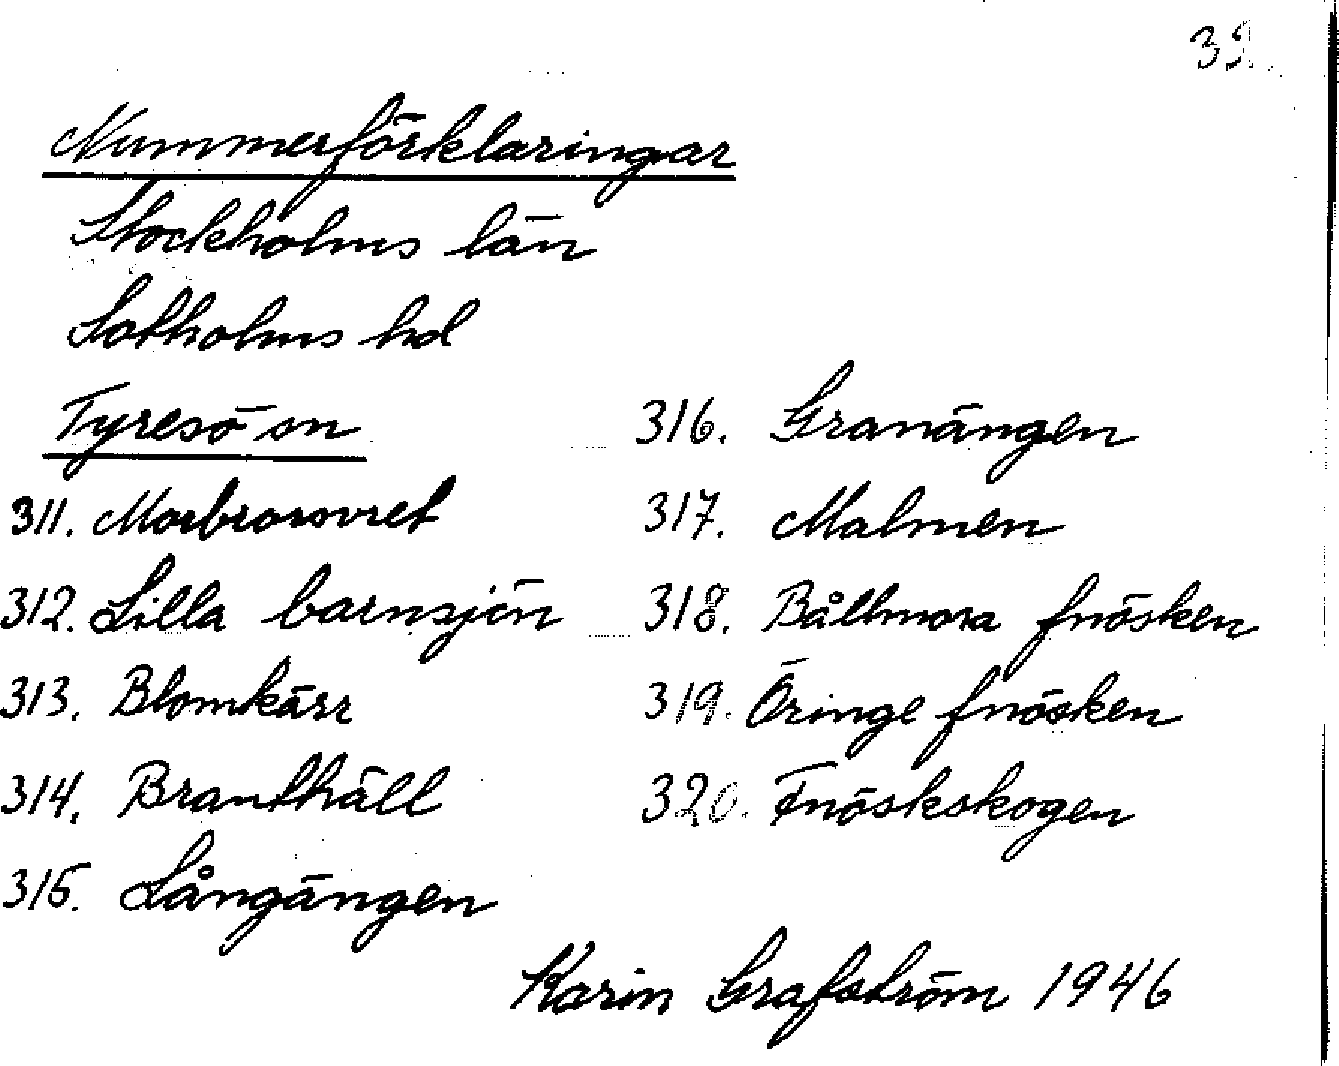 32.
Nummerförklaringar
Stockholms län
Sotholms hd
Tyresö sn
311. Morbrorsvret
312. Lilla barnsjön
313. Blomkärr
314. Branthäll
315. Långängen
316. Granängen
317. Malmen
318. Bållmora fnösken
319. Öringe fnösken
320. Fnöskskogen
Karin Grafström 1946